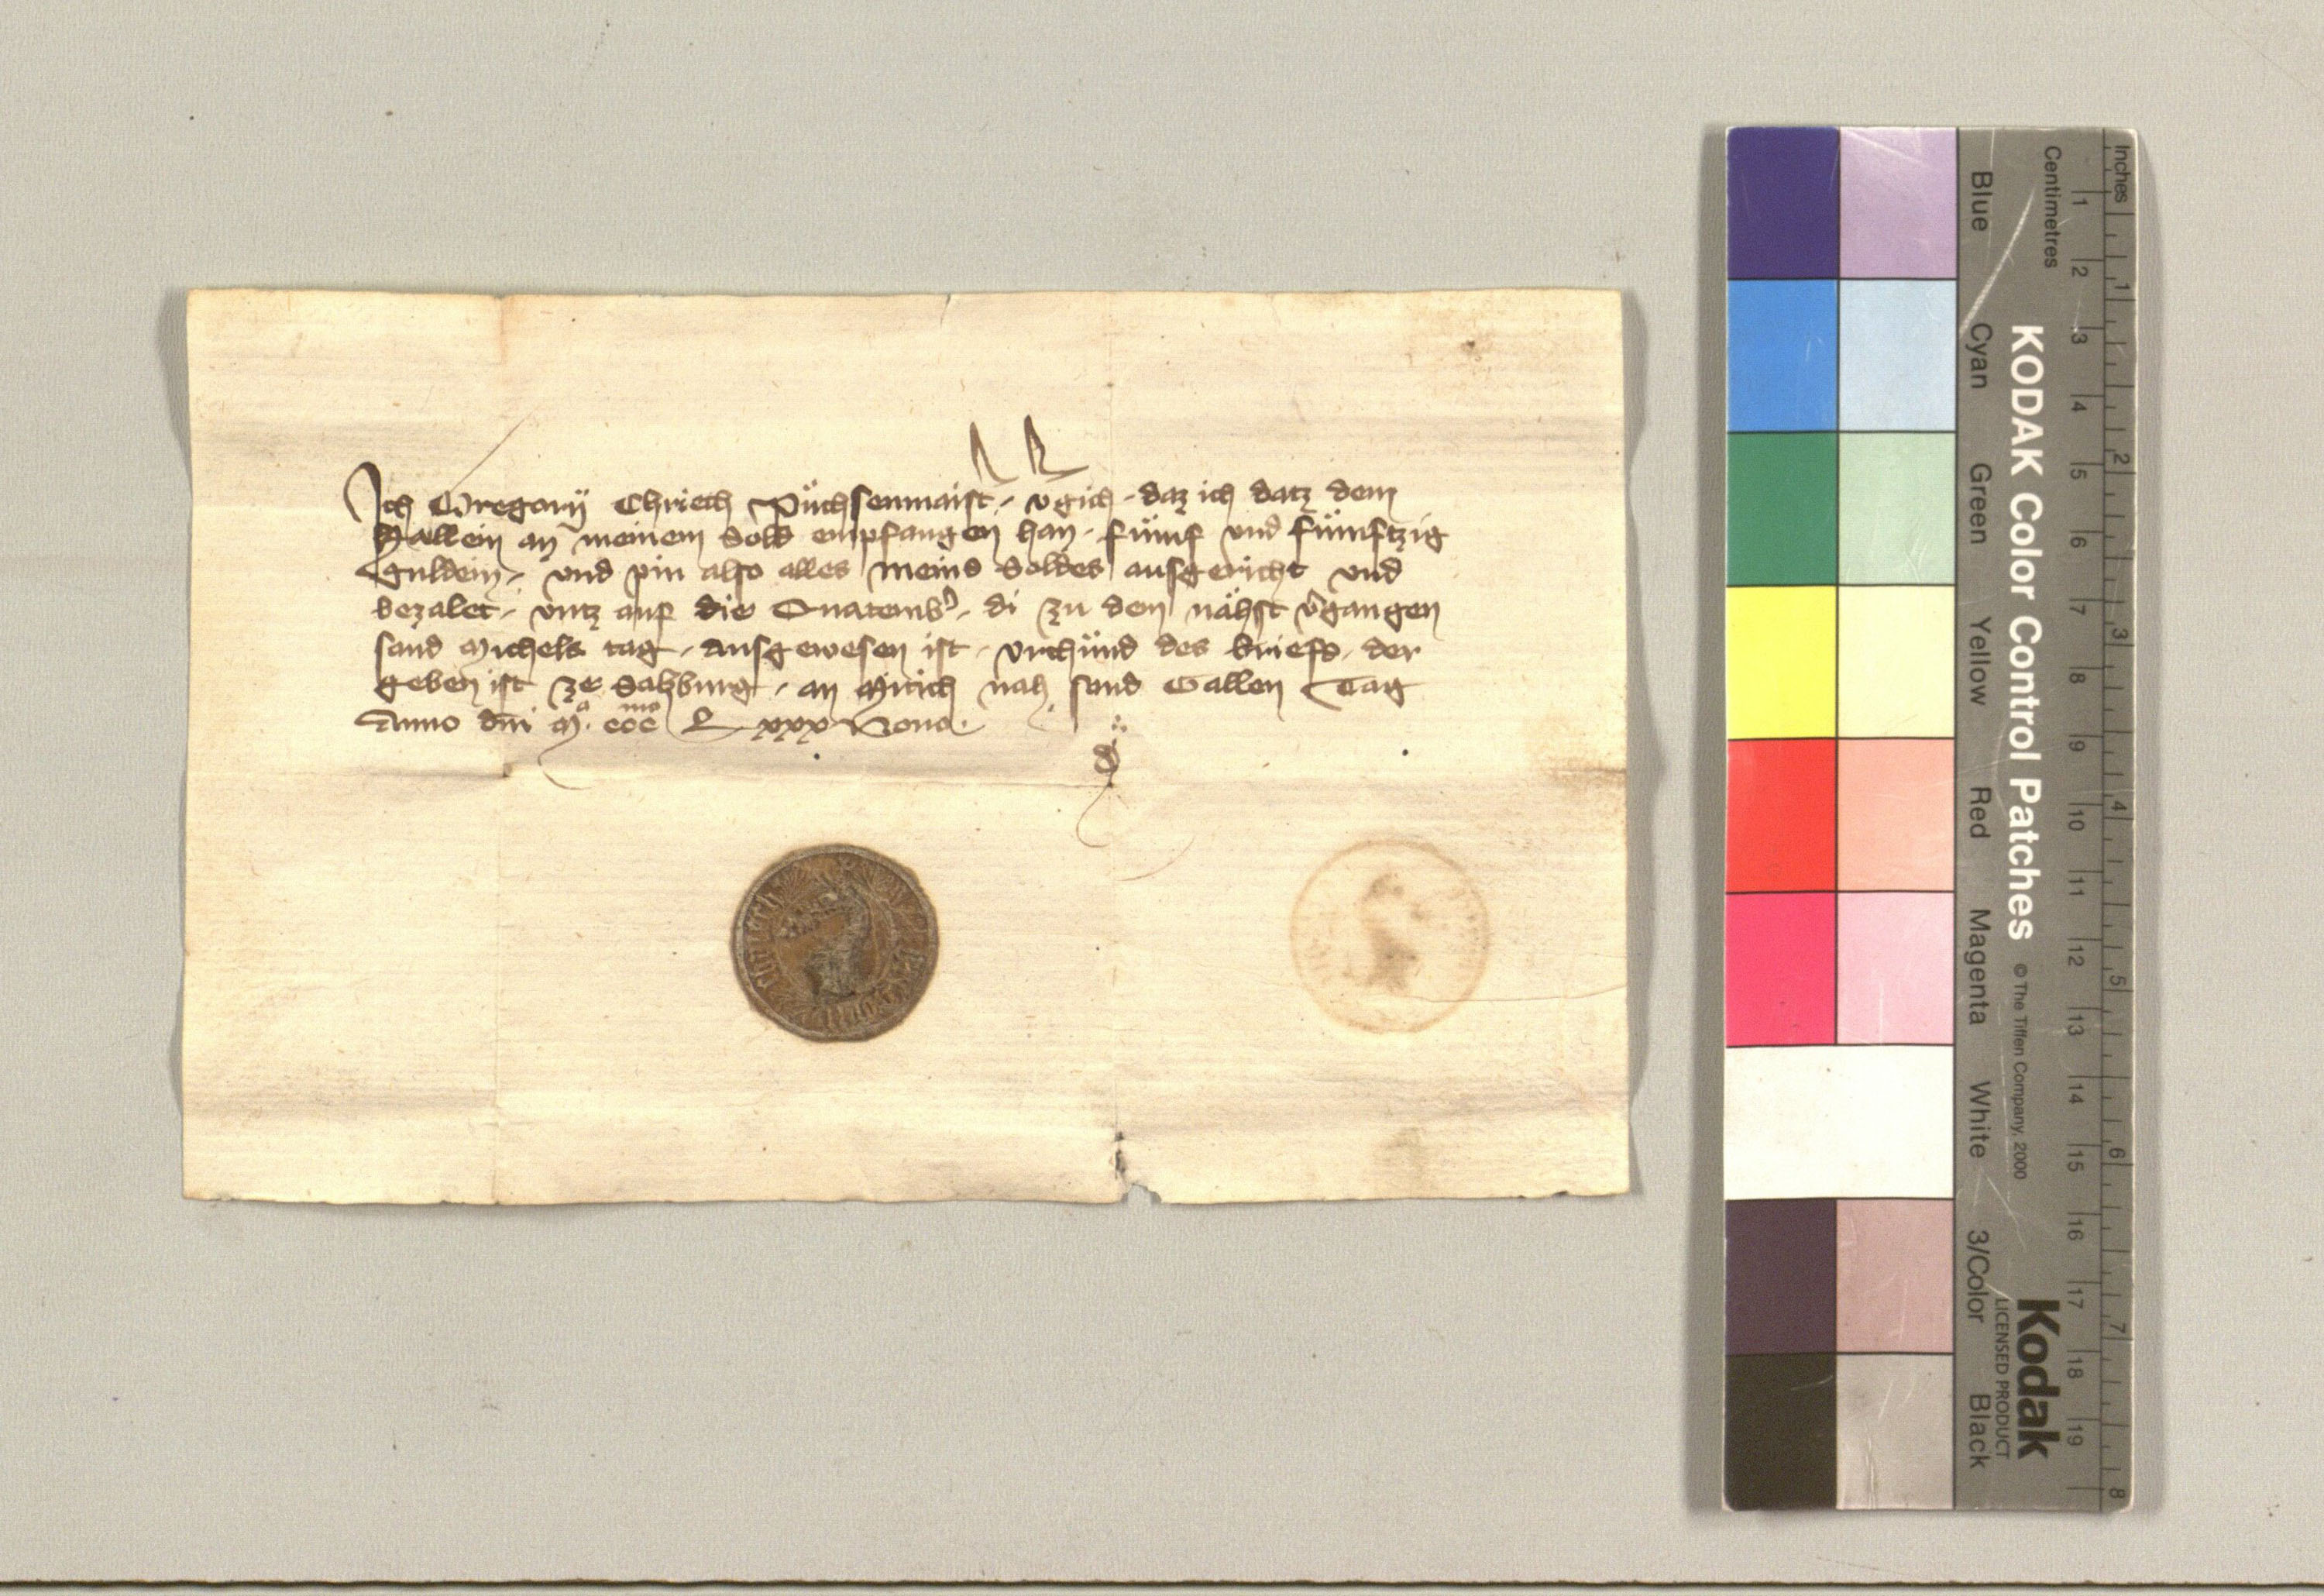 Ich Gregorÿ Chriech Püchsenmaist' v'gich daz ich datz dem
Hallein an meinem Sold empfangen han fümf und fümftzig
Guldein und pin also alles meins Soldes ausgericht und
bezalet untz auf die Quatemb' di zu dem nähst v'gangen
sand Michels tag ausgewesen ist urchünd des briefs der
geben ist ze Salzburg an Mitich nah sand Gallen Tag
Anno dni M° ccc^mo L xxx Nono
Inches
Centimetres
1 2 3 4 5 6 7 8 9 10 11 12 13 14 15 16 17 18 19
1 2 3 4 5 6 7 8
KODAK Color Control Patches © The Tiffen Company, 2000
Kodak
LICENSED PRODUCT
Blue Cyan Green Yellow Red Magenta White 3/Color Black